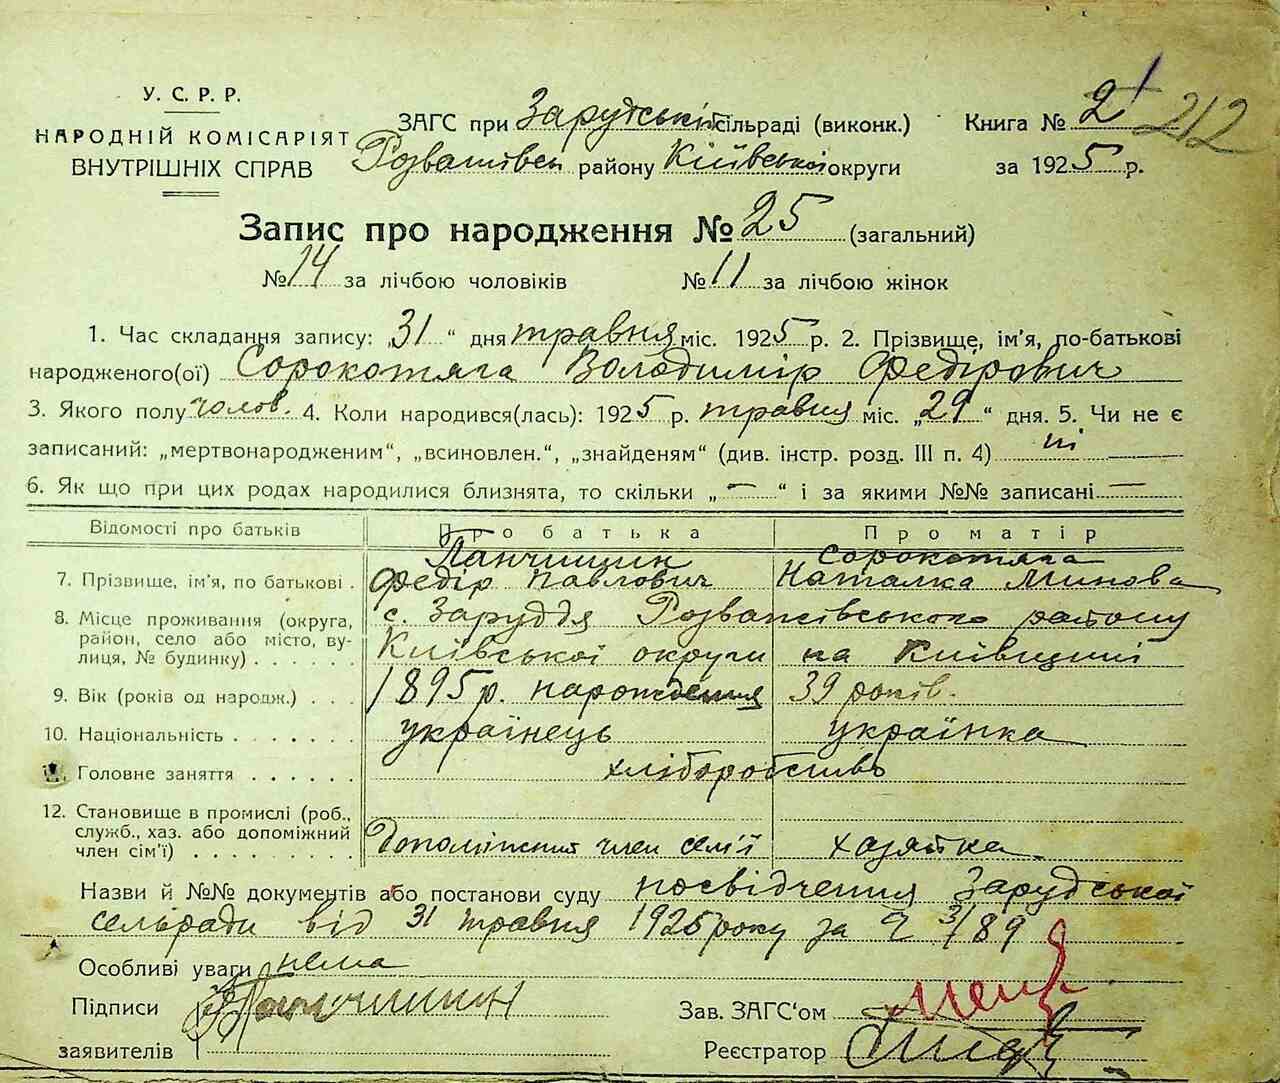 У. С. Р. Р.
НАРОДНІЙ КОМІСАРІЯТ
ВНУТРІШНІХ СПРАВ
ЗАГС при Зарудській сільраді (виконк.)
Розважівськ району Київської округи
Книга № 2 1 212
за 1925 р.
Запис про народження № 25 (загальний)
№ 14 за лічбою чоловіків № 11 за лічбою жінок
1. Час складання запису: „31“ дня травня міс. 1925 р. 2. Прізвище, ім'я, по-батькові
народженого(ої) Сорокотяга Володимір Федірович
3. Якого полу чолов. 4. Коли народився(лась): 1925 р. травня міс. „29“ дня. 5. Чи не є
записаний: „мертвонародженим“, „всиновлен.“, „знайденям“ (див. інстр. розд. III п. 4) ні
6. Як що при цих родах народилися близнята, то скільки „—“ і за якими №№ записані —
Відомості про батьків Про батька Про матір
7. Прізвище, ім'я, по батькові . Панчишин Федір Павлович Сорокотяга Наталка Минова
8. Місце проживання (округа, район, село або місто, вулиця, № будинку) . . . . . . с. Заруддя Розважівського району
Київської округи на Київщині
9. Вік (років од народж.) . . . 1895 р. нарождения 39 років.
10. Національність . . . . . . українець українка
11. Головне заняття . . . . . . хліборобствъ
12. Становище в промислі (роб.,
служб., хаз. або допоміжний
член сім'ї) . . . . . . . . . Допоміжний член семʼї хазяйка
Назви й №№ документів або постанови суду посвідчення Зарудської
сельради від 31 травня 1925 року за 2 3/89
Особливі уваги нема
Підписи Панчишин
заявителів
Зав. ЗАГС'ом
Реєстратор